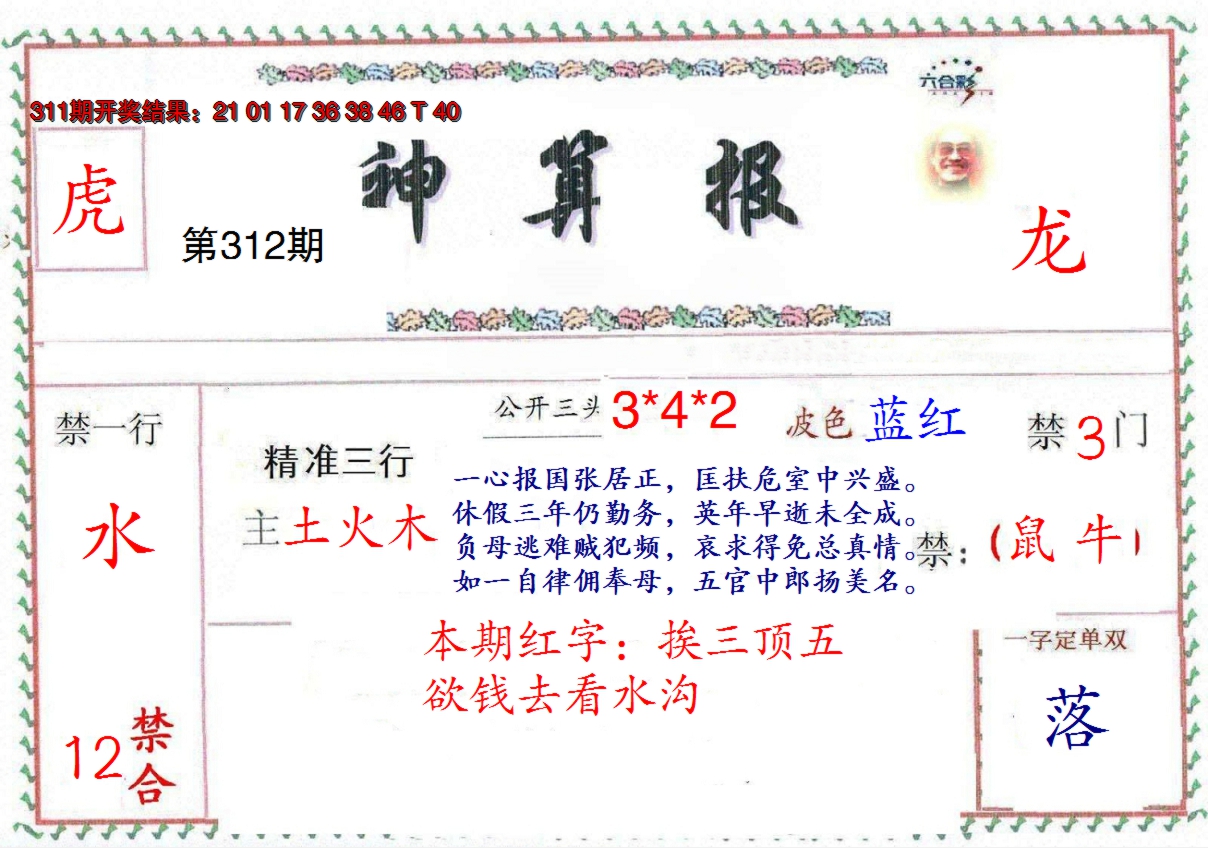 六合彩
311期开奖结果：21 01 17 36 38 46 T 40
神算报
虎
第312期
龙
禁一行
水
12
禁合
精准三行
主土火木
公开三头 3*4*2
波色 蓝红
禁3门
一心报国张居正，匡扶危室中兴盛。
休假三年仍勤务，英年早逝未全成。
负母逃难贼犯频，哀求得免总真情。
如一自律佣奉母，五官中郎扬美名。
禁：（鼠 牛）
本期红字：挨三顶五
欲钱去看水沟
一字定单双
落